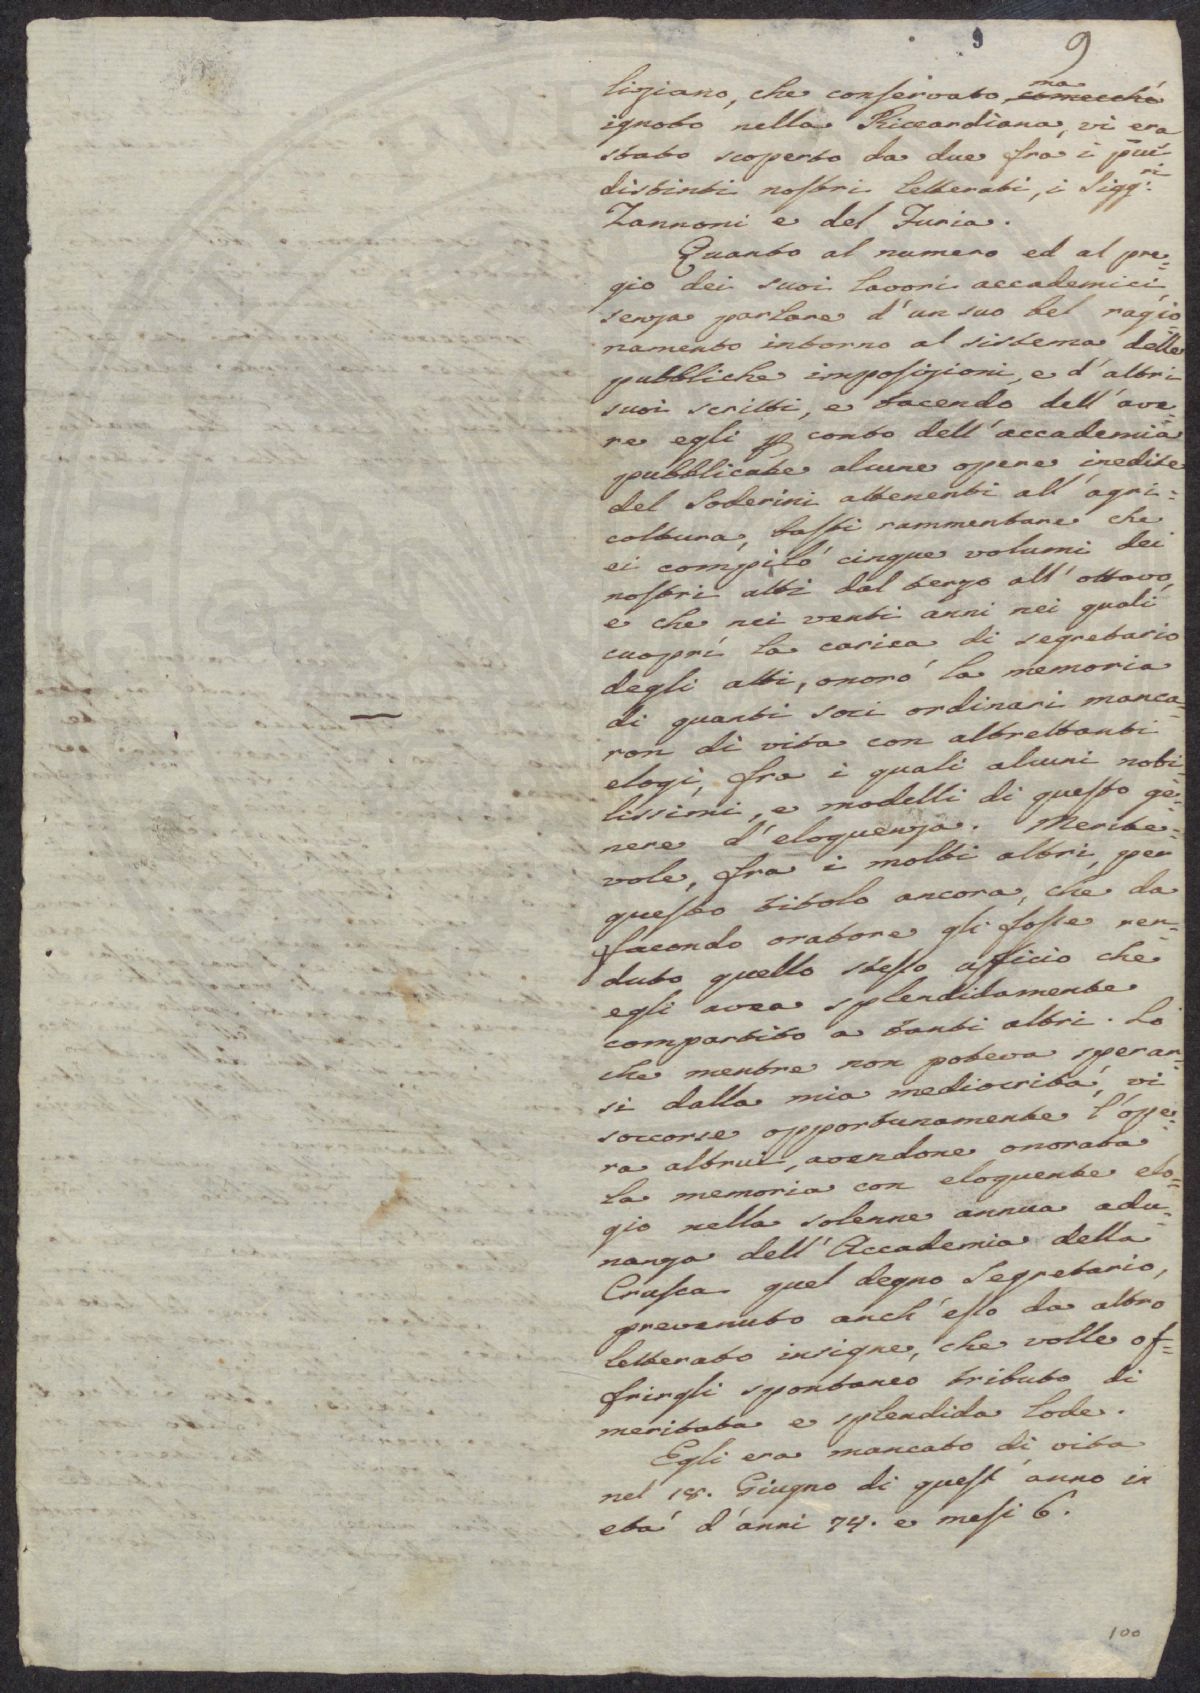 9 9
liziano, che conservato, ma comecché
ignoto nella Riccardiana, vi era
stato scoperto da due frà i più
distinti nostri letterati, i Sigg.ri
Zannoni e del Furia.
Quanto al numero ed al pre=
gio dei suoi lavori accademici
senza parlare d'un suo bel ragio
namento intorno al sistema delle
pubbliche imposizioni, e d'altri
suoi scritti, e tacendo dell'ave=
re egli p conto dell'accademia
pubblicate alcune opere inedite
del Soderini attenenti all'agri=
coltura, basti rammentare che
ei compilò cinque volumi dei
nostri atti dal terzo all'ottavo,
e che nei venti anni nei quali
cuoprì la carica di segretario
degli atti, onorò la memoria
di quanti soci ordinari manca=
ron di vita con altrettanti
elogi, fra i quali alcuni nobi=
lissimi, e modelli di questo ge=
nere d'eloquenza. Merite=
vole, fra i molti altri, per
questo titolo ancora, che da
facondo oratore gli fosse ren=
duto quello stesso uficio che
egli avea splendidamente
compartito a tanti altri. Lo
che mentre non poteva sperar=
si dalla mia mediocrità, vi
soccorse opportunamente l'ope=
ra altrui, avendone onorata
la memoria con eloquente elo=
gio nella solenne annua adu=
nanza dell'Accademia della
Crusca quel degno Segretario,
prevenuto anch'esso da altro
letterato insigne, che volle of=
frirgli spontaneo tributo di
meritata e splendida lode.
Egli era mancato di vita
nel 18. Giugno di quest'anno in
età d'anni 74. e mesi 6.
100